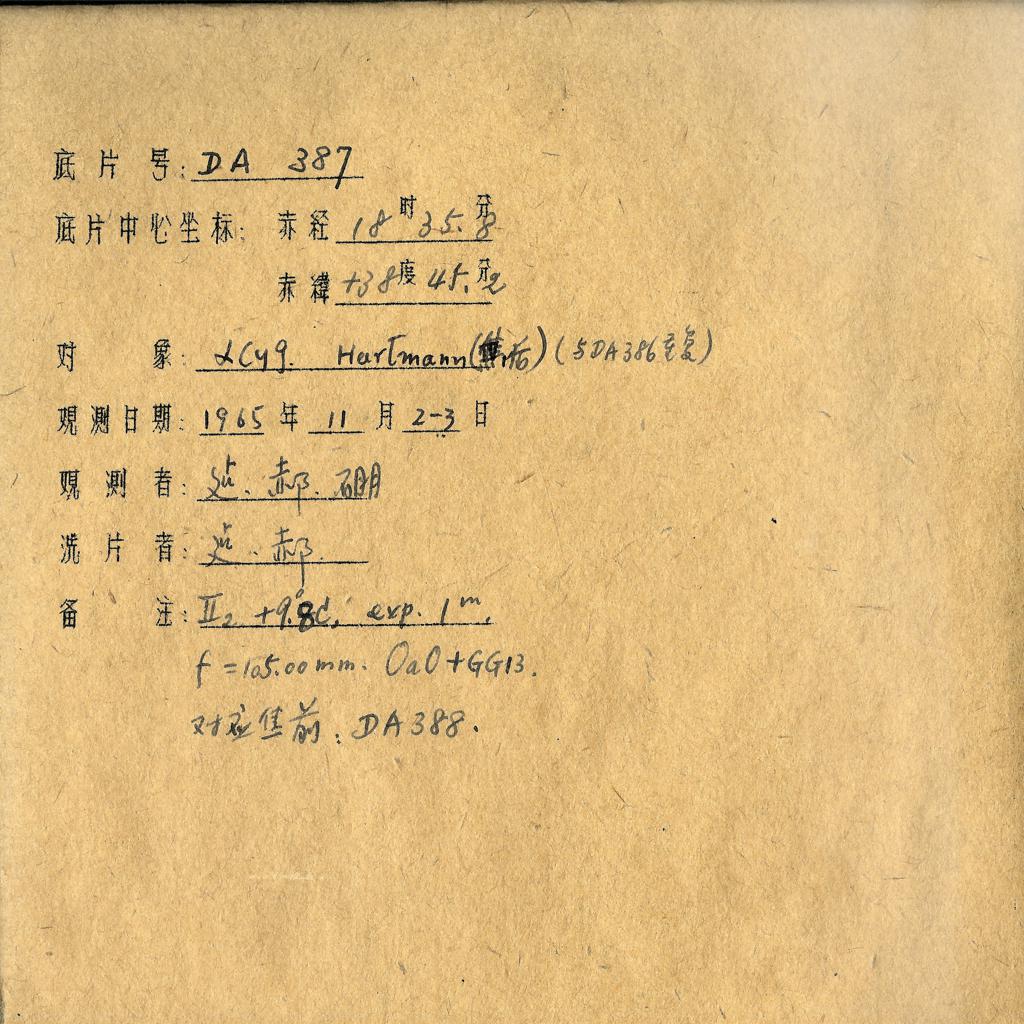 底片号: DA 387
底片中心坐标: 赤经 18时35.8分
赤緯 +38度45.2分
对象: αCyg. Hartmann(焦后)(与DA386重复)
观测日期: 1965年11月2-3日
观测者: 郝. 硼
洗片者: 郝.
备注: II₂ +9.8°C, exp. 1ᵐ.
f=105.00mm. OaO+GG13.
对应焦前: DA388.